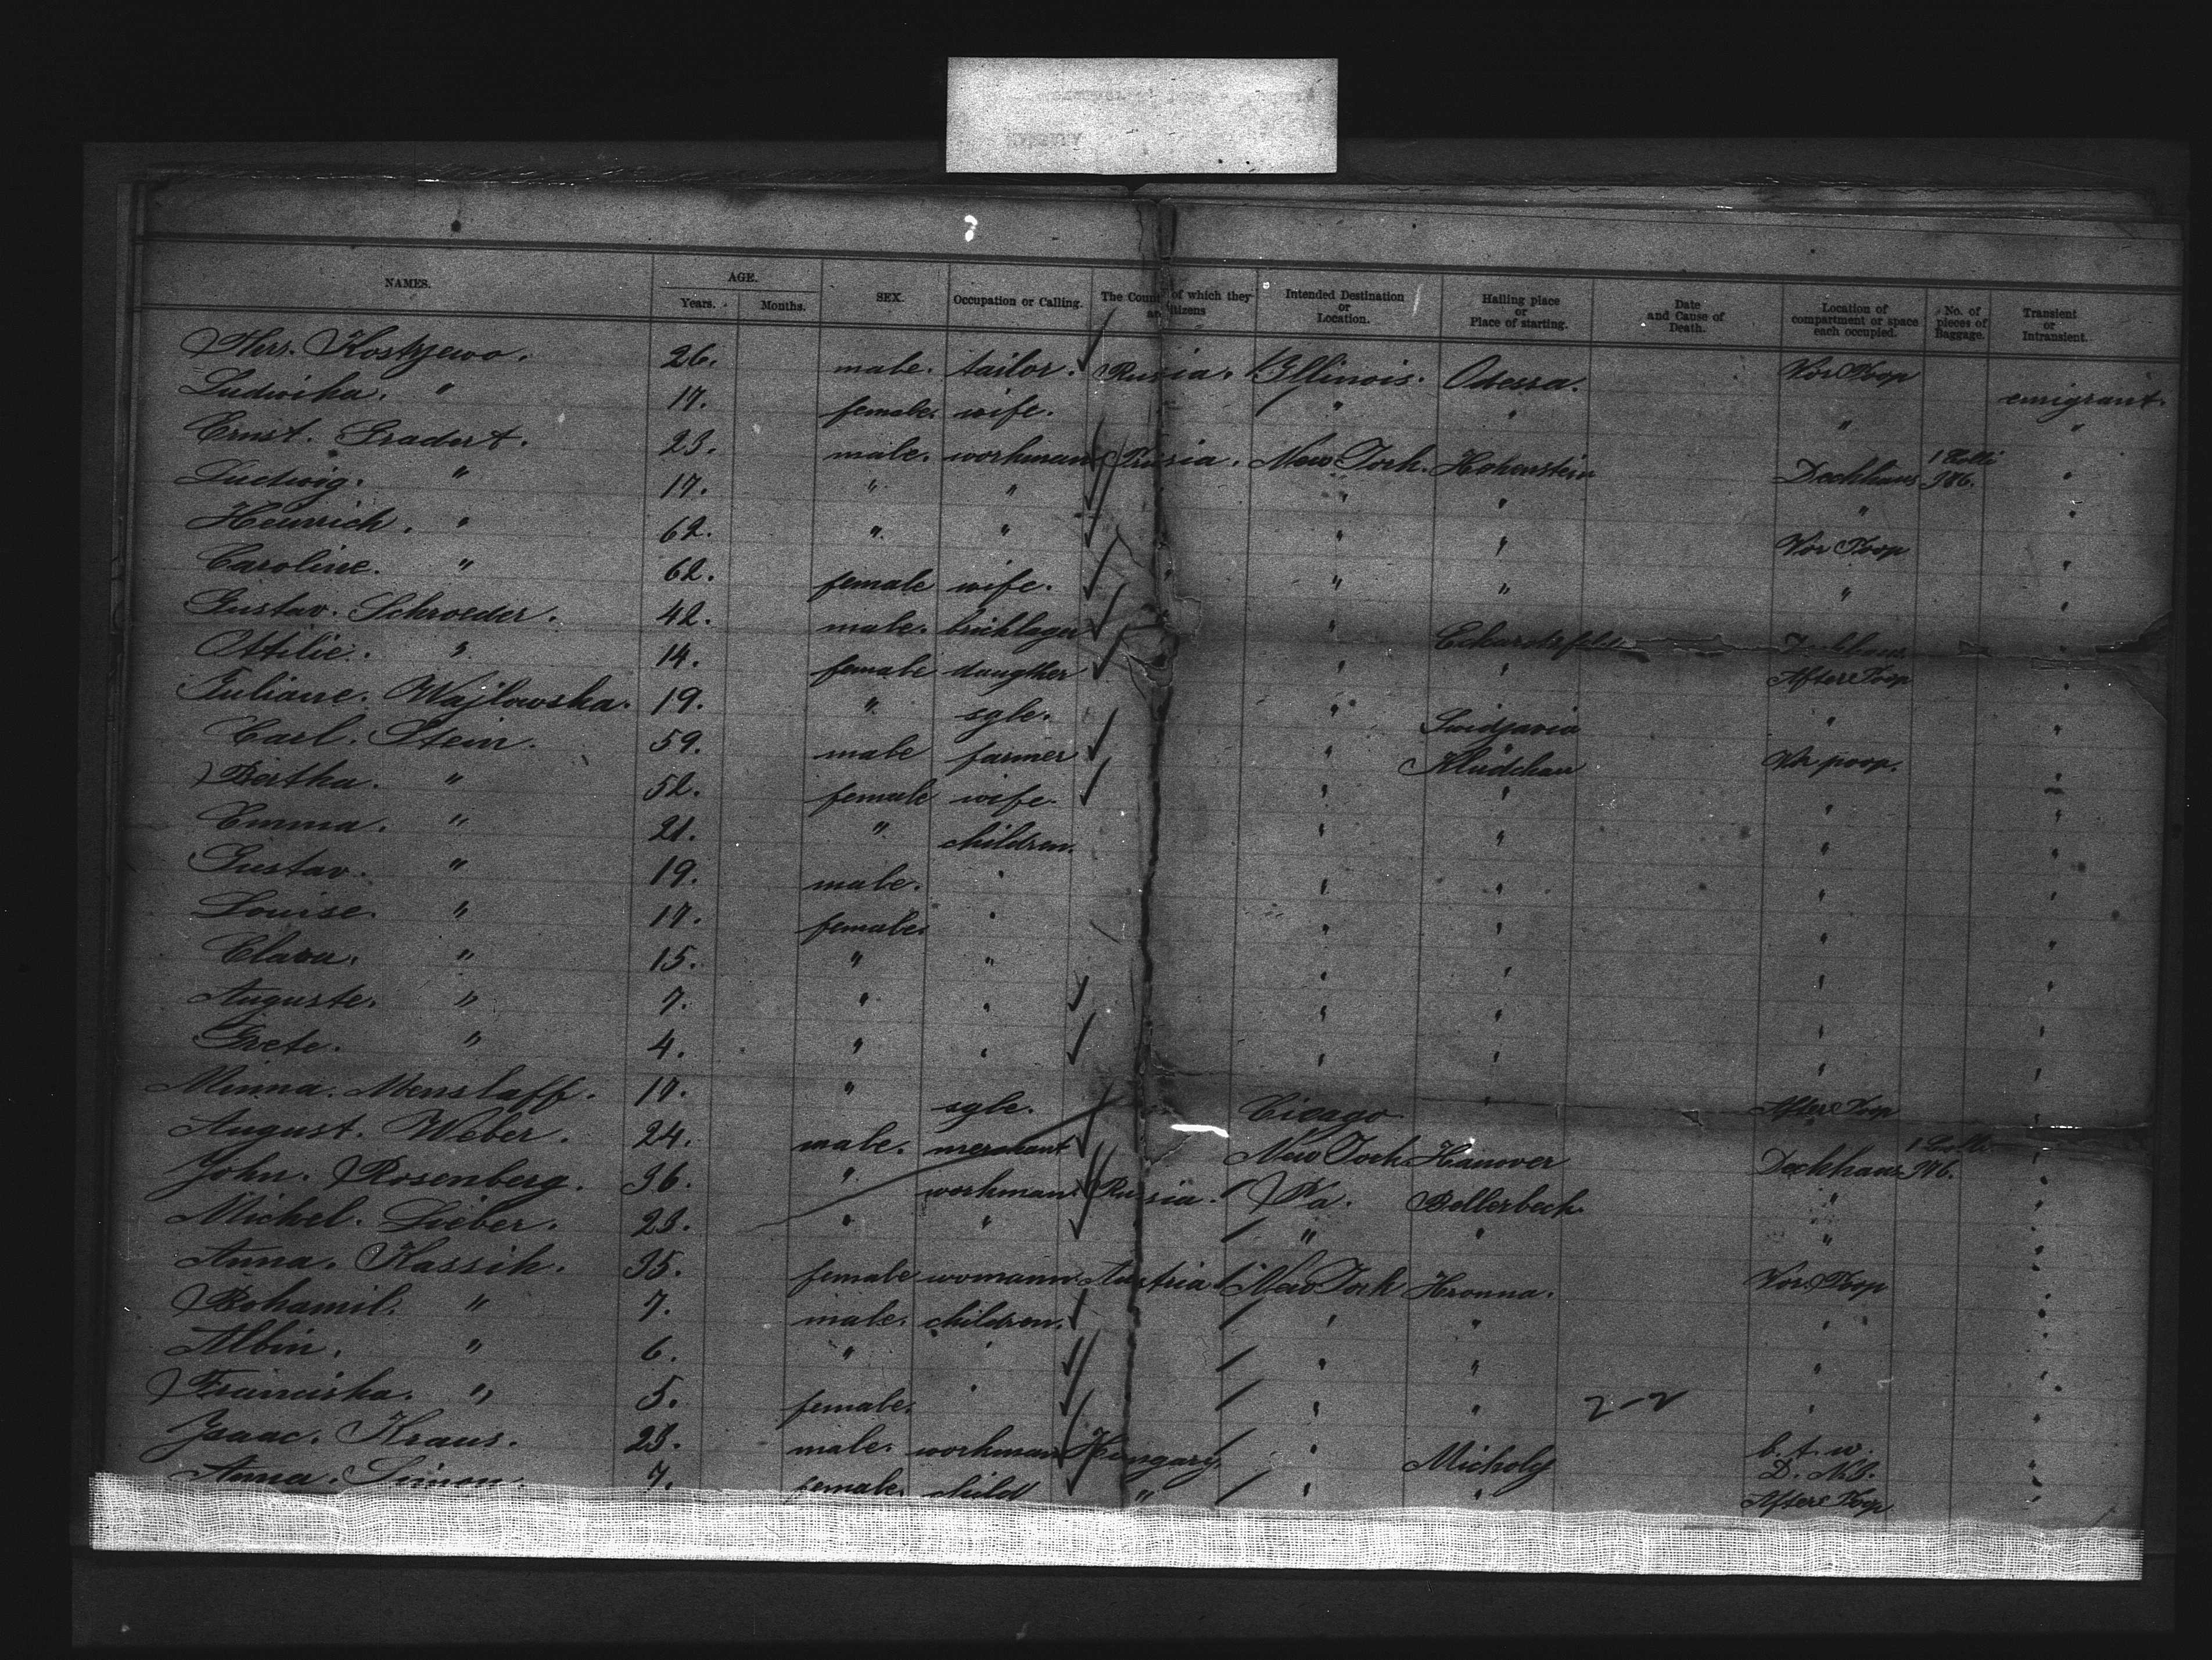 NAMES. AGE. Years. Months. SEX. Occupation or Calling. The Count of which they are itizens Intended Destination or Location. Hailing place or Place of starting. Date and Cause of Death. Location of compartment or space each occupied. No. of pieces of Baggage. Transient or Intransient.
Thrs. Kostzewo. 26. male. tailor. Russia. Illinois. Odessa. Vor Poop emigrant.
Ludwika. " 17. female. wife. " " " "
Ernst. Gradert. 23. male. workman Prussia. New York. Hohenstein Deckhaus 1 Colli 986. "
Ludwig. " 17. " " " " " "
Heinrich. " 62. " " " " Vor Poop "
Caroline. " 62. female wife. " " " " "
Gustav. Schroeder. 42. male. bricklager " "
Ottilie. " 14. female daugther " " After Poop "
Juliane. Wajlowska. 19. " sgle. " " "
Carl. Stein. 59. male farmer " Kludchau Vor poop. "
Bertha. " 52. female wife. " " " "
Emma. " 21. " children. " " " "
Gustav. " 19. male. " " " " "
Louise. " 17. female. " " " " "
Clara. " 15. " " " " " "
Auguste. " 7. " " " " " "
Grete. " 4. " " " " " "
Minna. Menslaff. 17. " sgle. " Cicago " After Poop "
August. Weber. 24. male. merchant New York Hanover Deckhaus 1 Colli 986. "
John. Rosenberg. 36. " workman. Russia. Pa. Bellerbeck. " "
Michel. Lieber. 23. " " " " " " "
Anna. Kassik. 35. female womann. Austria New York Hronna. Vor. Poop "
Bohamil. " 7. male. children. " " " "
Albin. " 6. " " " " " "
Franciska. " 5. female. " " " 2-2 " "
Isaac. Kraus. 23. male. workman Hungary. " Micholy b. t. w. D. N.B. "
Anna. Simon. 7. female. child " " " After Poop "